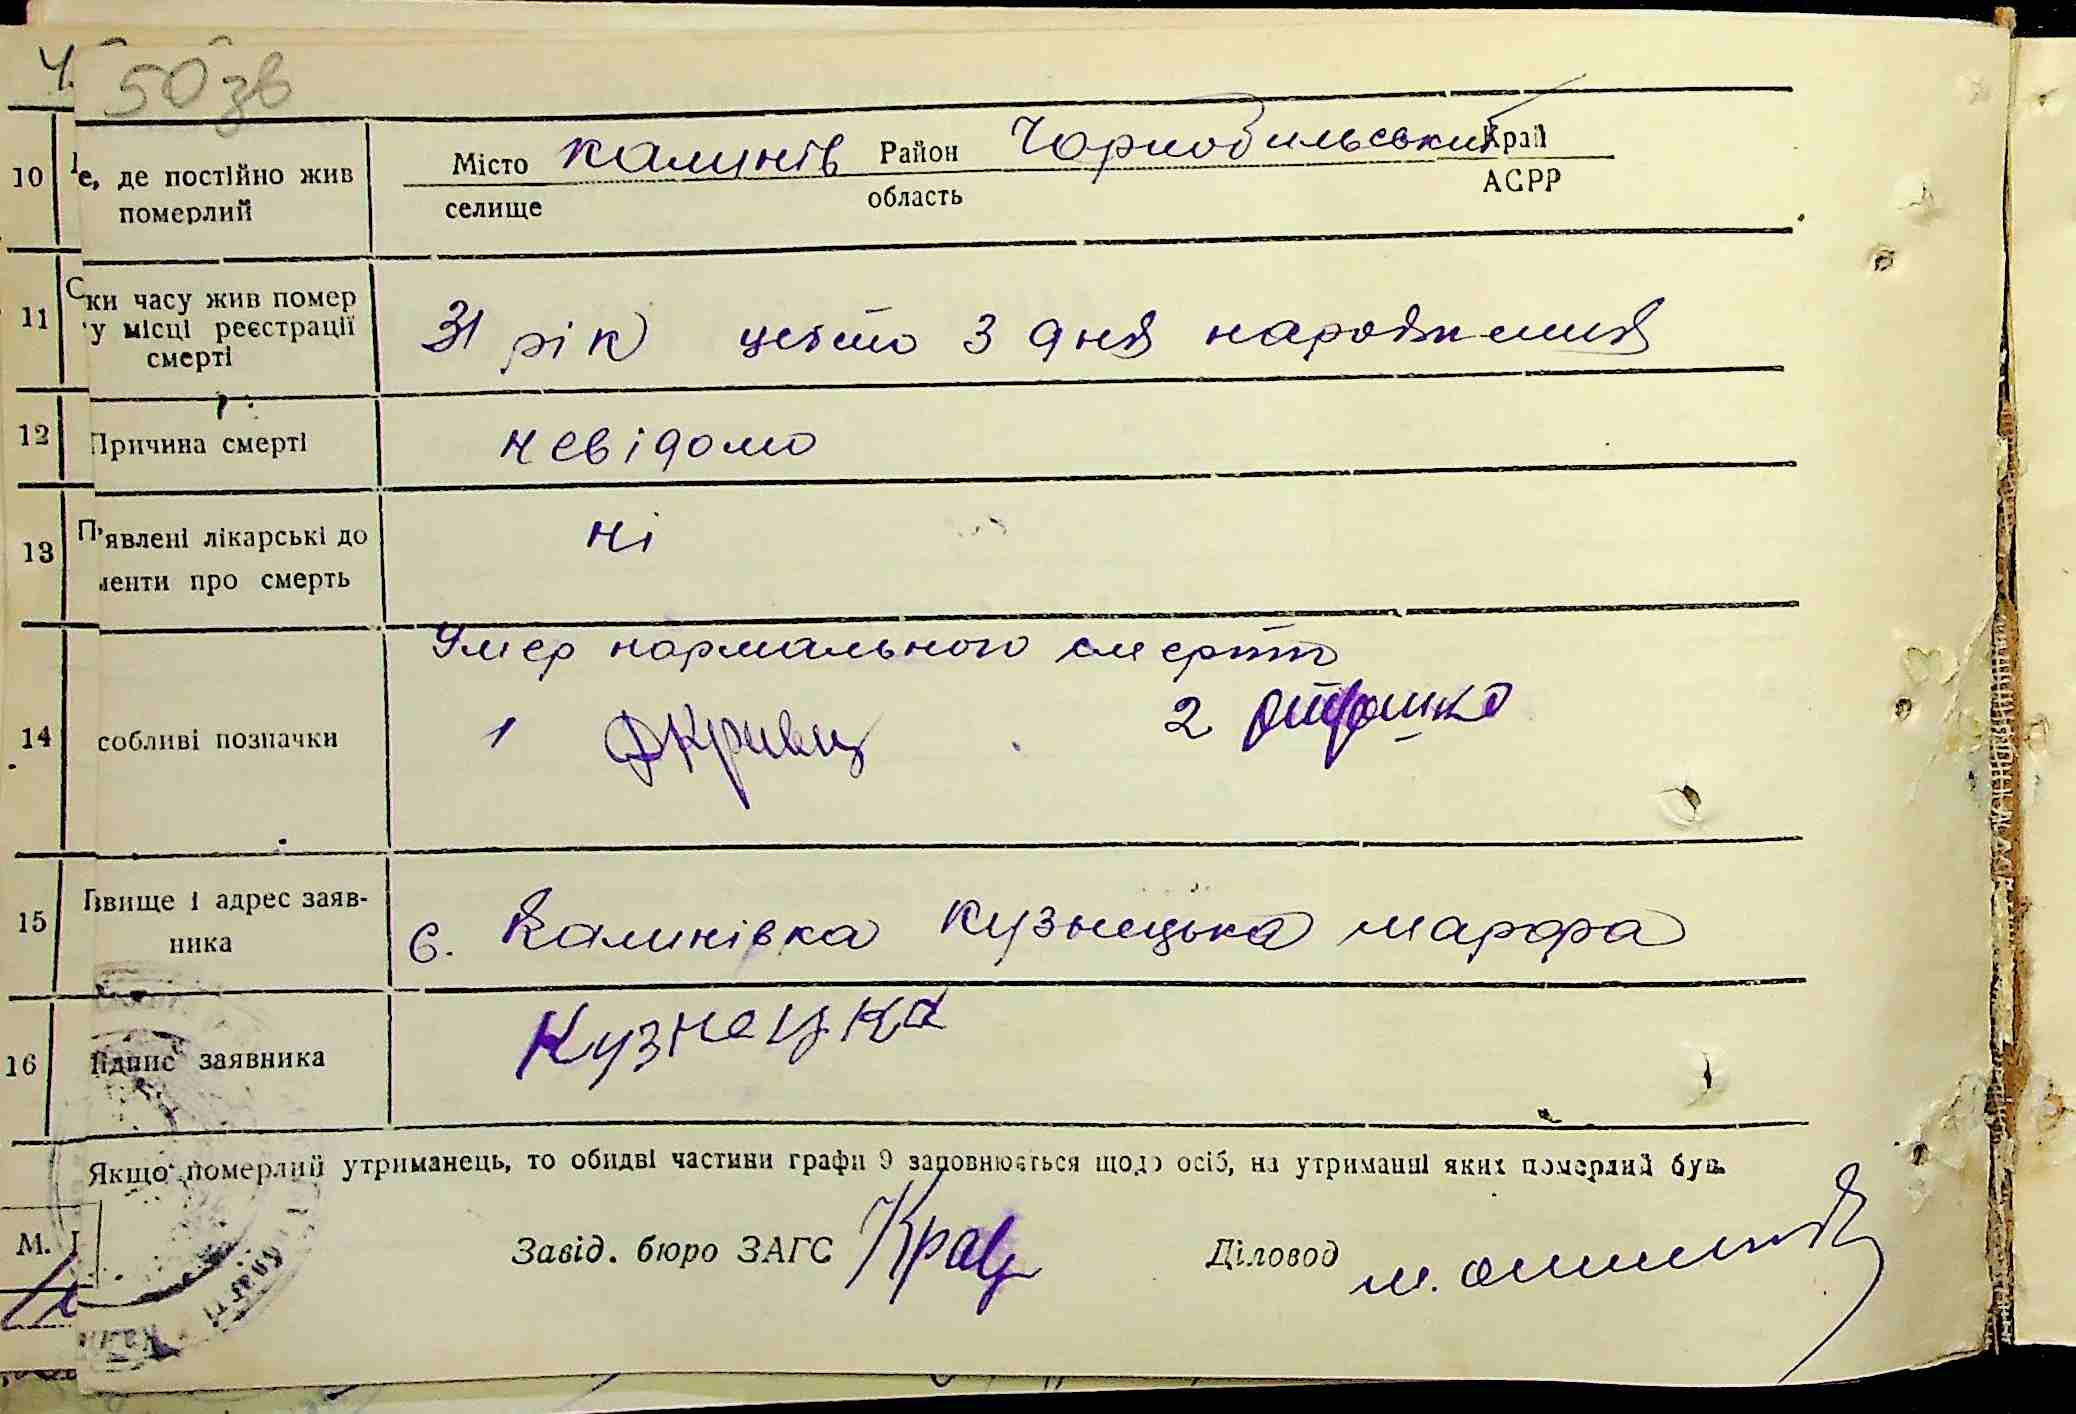 50 зв
10 е, де постійно жив Місто Калинів Район Чорнобильський Край
померлий селище область АСРР
11 ки часу жив помер
у місці реєстрації 31 рік цебто з дня народження
смерті
12 Причина смерті невідомо
13 П'явлені лікарські до ні
менти про смерть
Умер нормального смертю
14 собливі позначки 1 ФКривец 2
15 вище і адрес заяв- с. Калинівка Кузнецька марфа
ника
16 ідпис заявника Кузнецка
Якщо померлий утриманець, то обидві частини графи 9 заповнюється щодо осіб, на утриманні яких померлий був.
М. Завід. бюро ЗАГС Крав Діловод м.